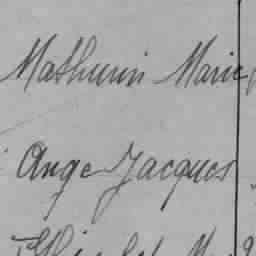 Mathurin Marie
Ange Jacques